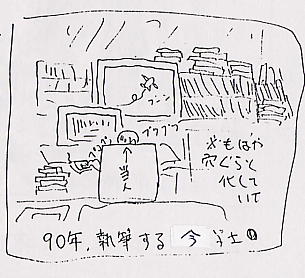 ブーン
ブツブツ
↑
当人
※もはや
穴ぐらと
化して
いて
90年、執筆する 今